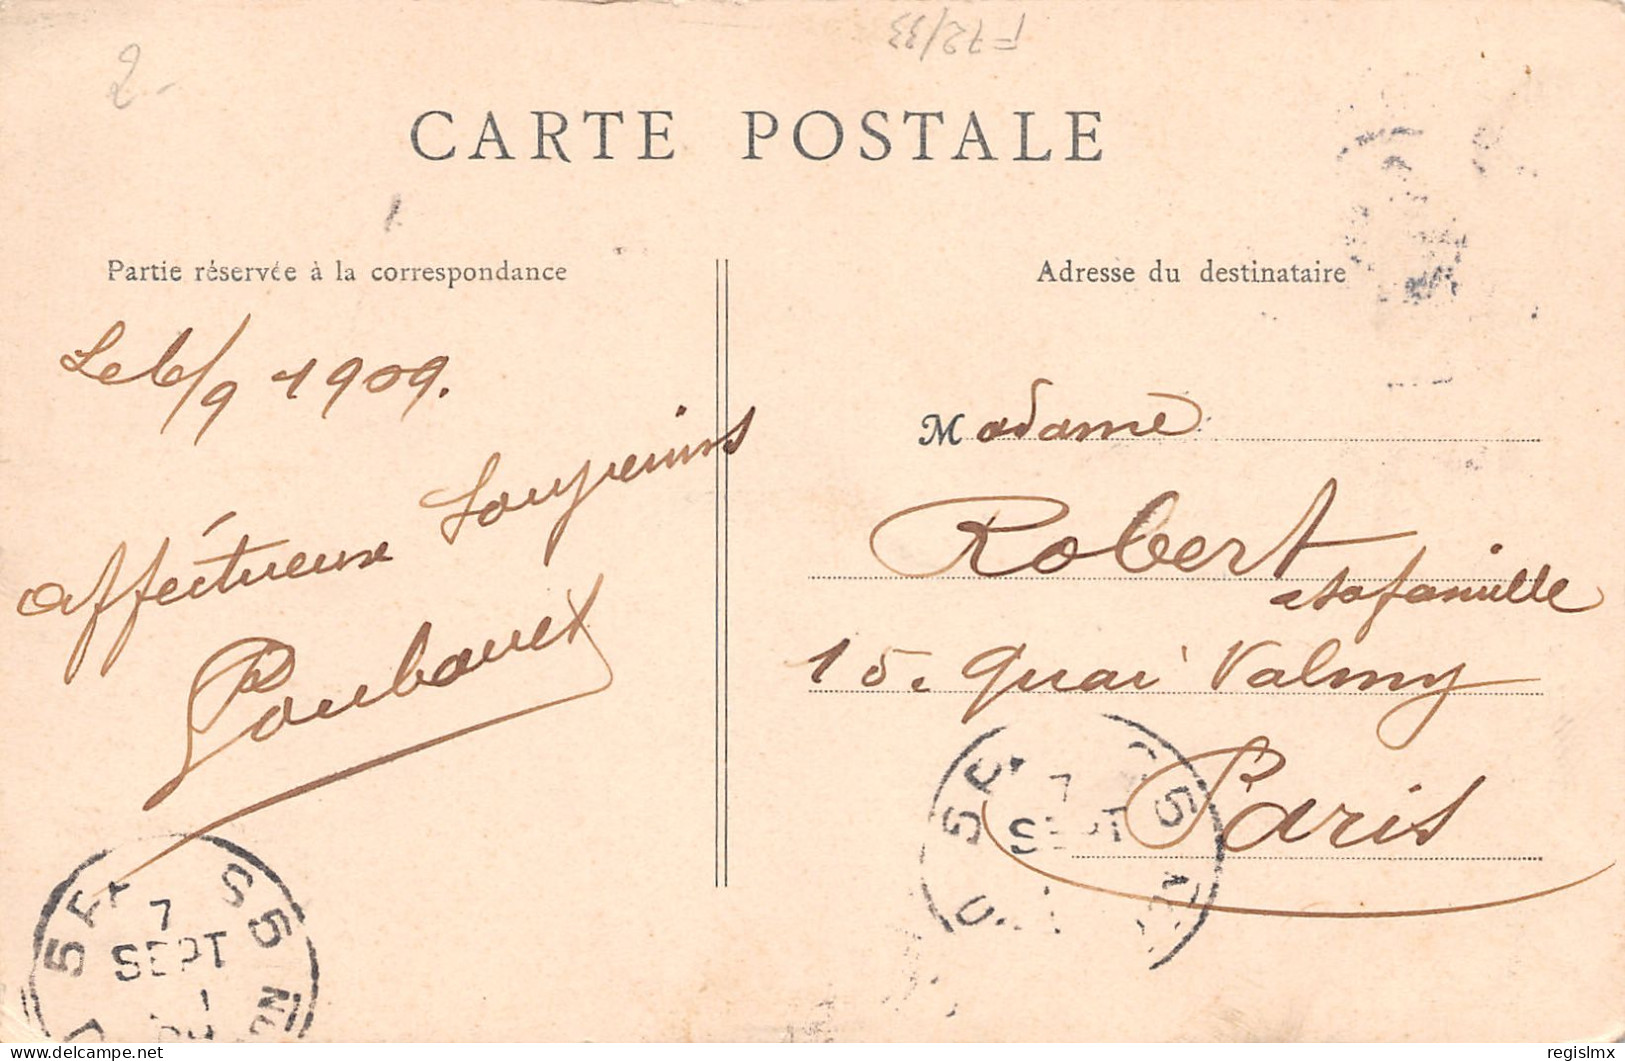 F 72/33
2-
CARTE POSTALE
Partie réservée à la correspondance
Le 6/9 1909.
affectueux Souvenirs
Adresse du destinataire
Madame
Robert
et sa famille
15. Quai Valmy
Paris
7
SEPT
7
SEPT
regislmx